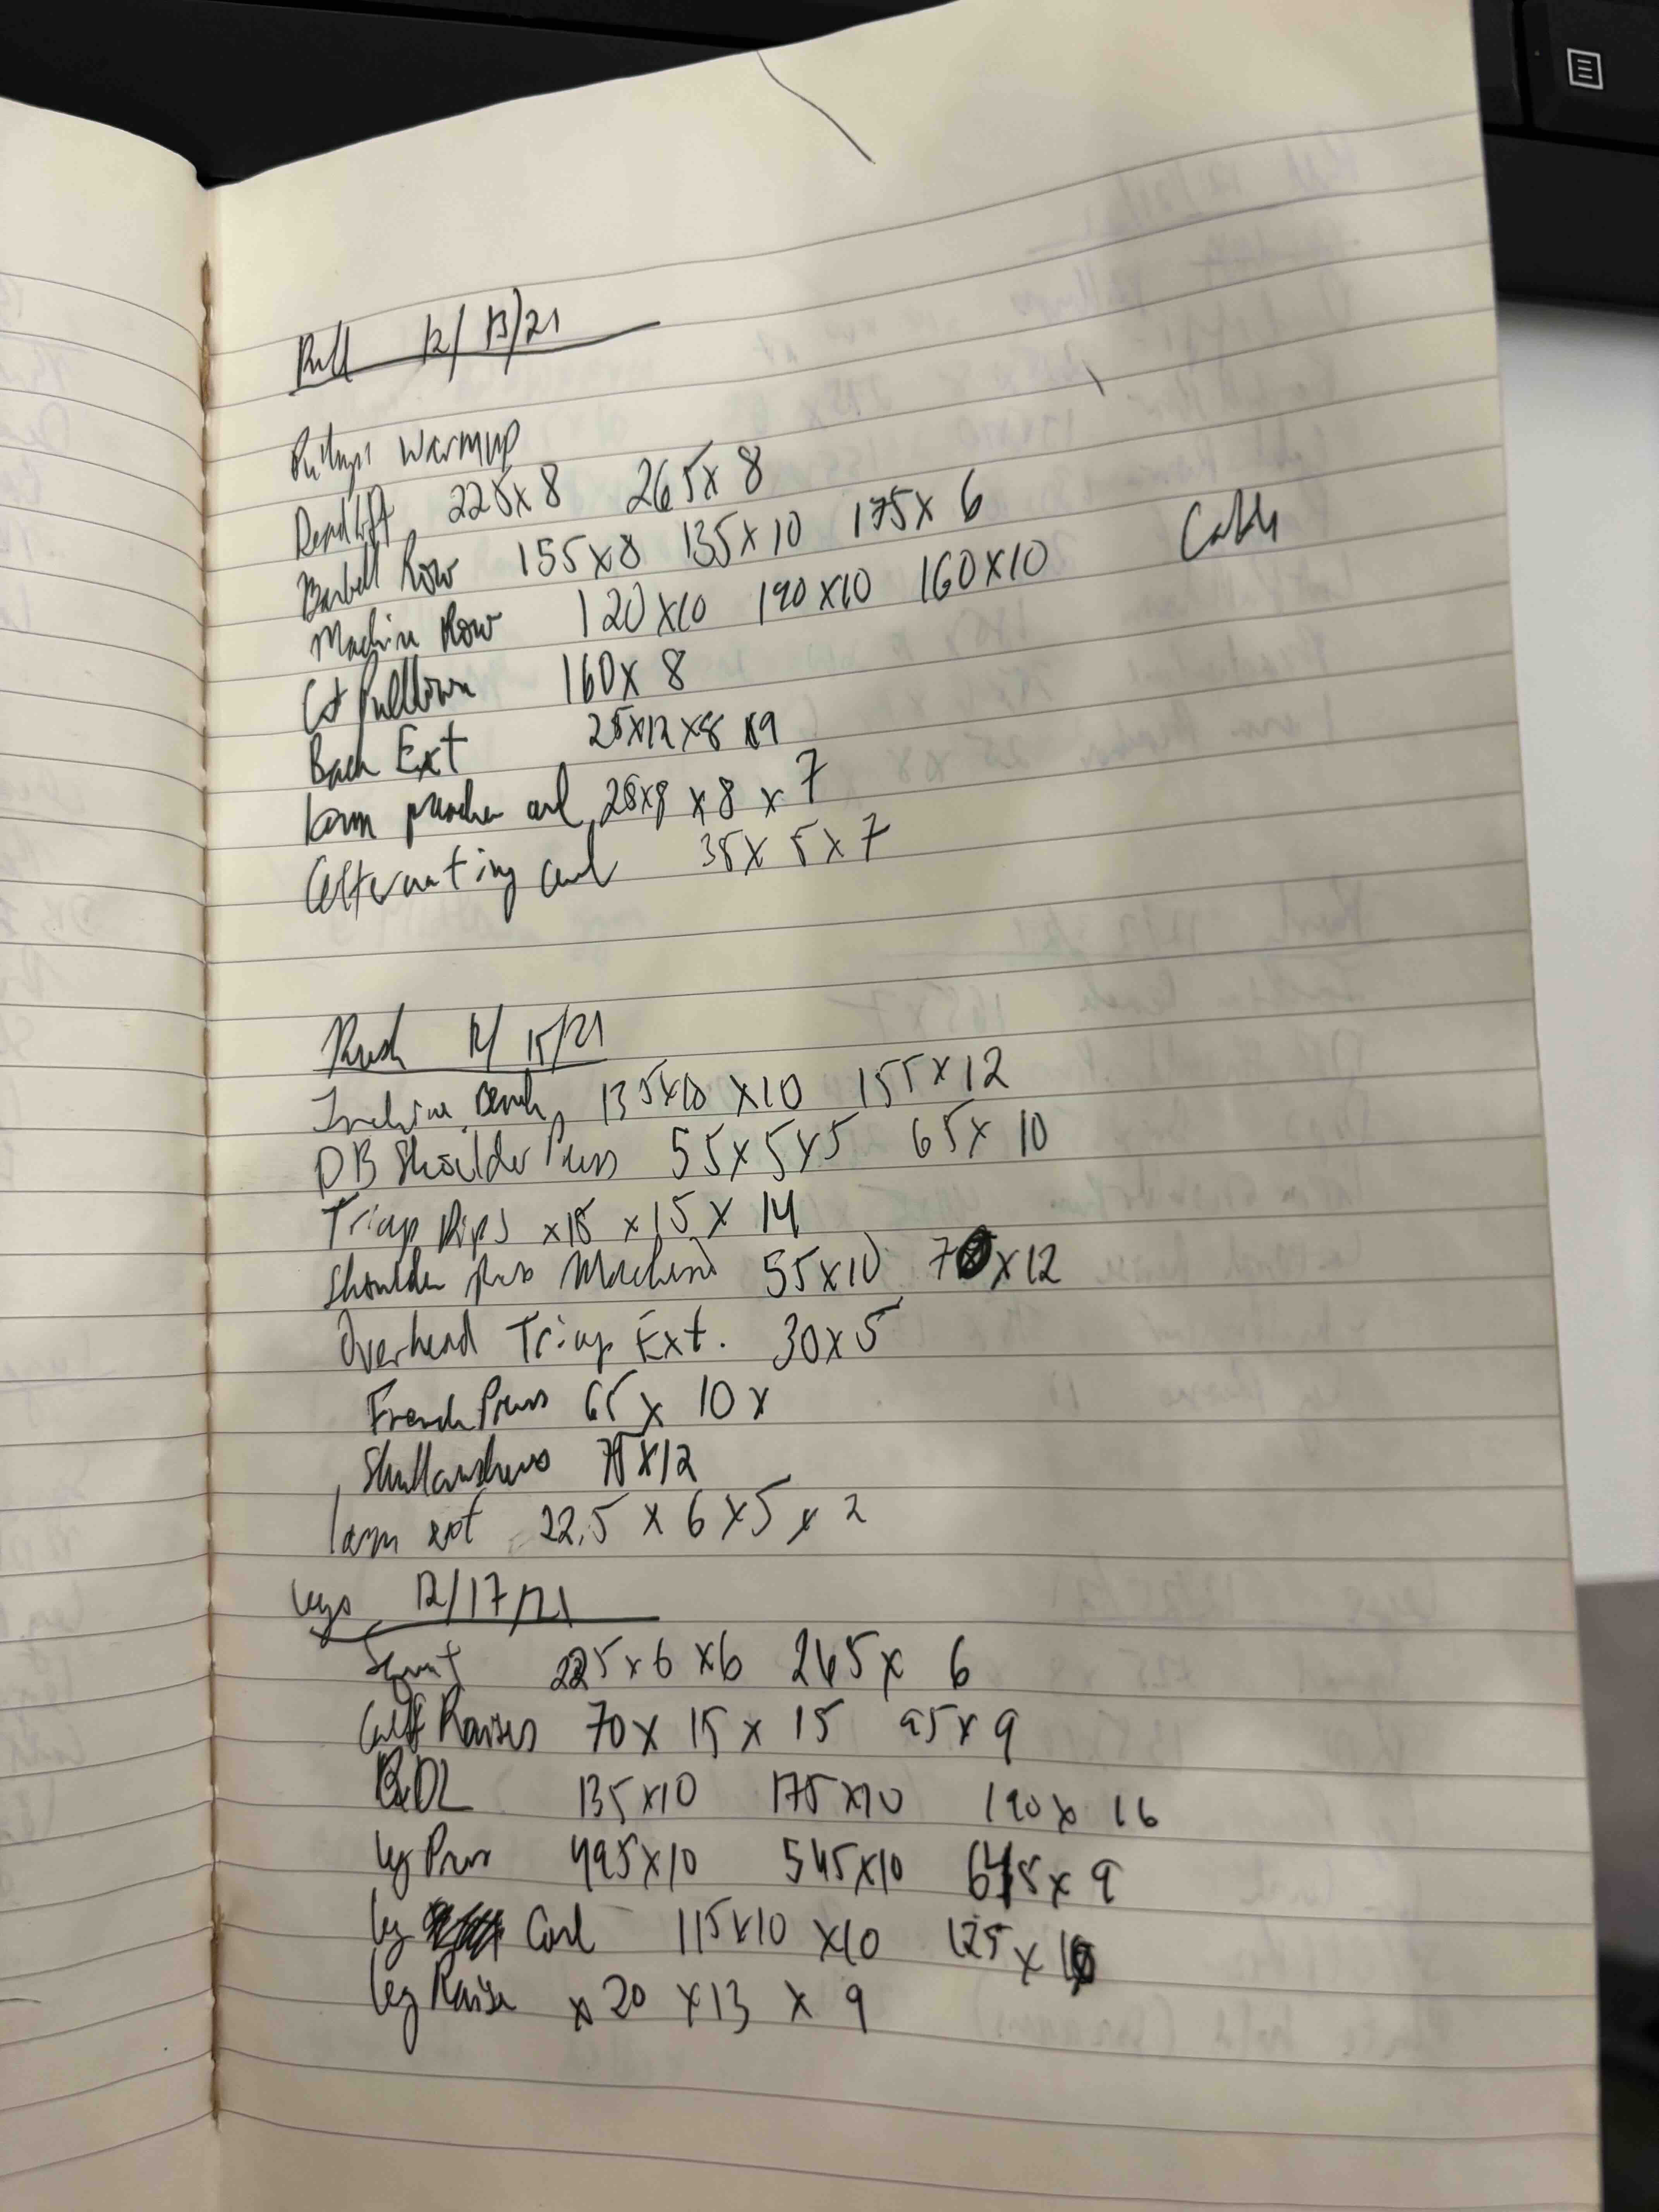 Pull 12/13/21
Pullups Warmup
Deadlift 225x8 265x8
Barbell Row 155x8 135x10 175x6
Machine Row 120x10 190x10 160x10 Cable
Lat Pulldown 160x8
Back Ext 25x12x8x9
1arm preacher curl 25x8 x8 x7
Alternating curl 35x5x7
Push 12/15/21
Incline Bench 135x10 x10 155x12
DB Shoulder Press 55x5x5 65x10
Tricep Dips x15 x15 x14
Shoulder Press Machine 55x10 70x12
Overhead Tricep Ext. 30x5
French Press 65x10x
Skullcrushers x12
1arm ext 22.5x6x5x2
Legs 12/17/21
Squat 225x6x6 265x6
Calf Raises 70x15x15 95x9
RDL 135x10 175x10 190x16
Leg Press 495x10 545x10 x9
Leg Curl 115x10 x10 125x
Leg Raise x20 x13 x9